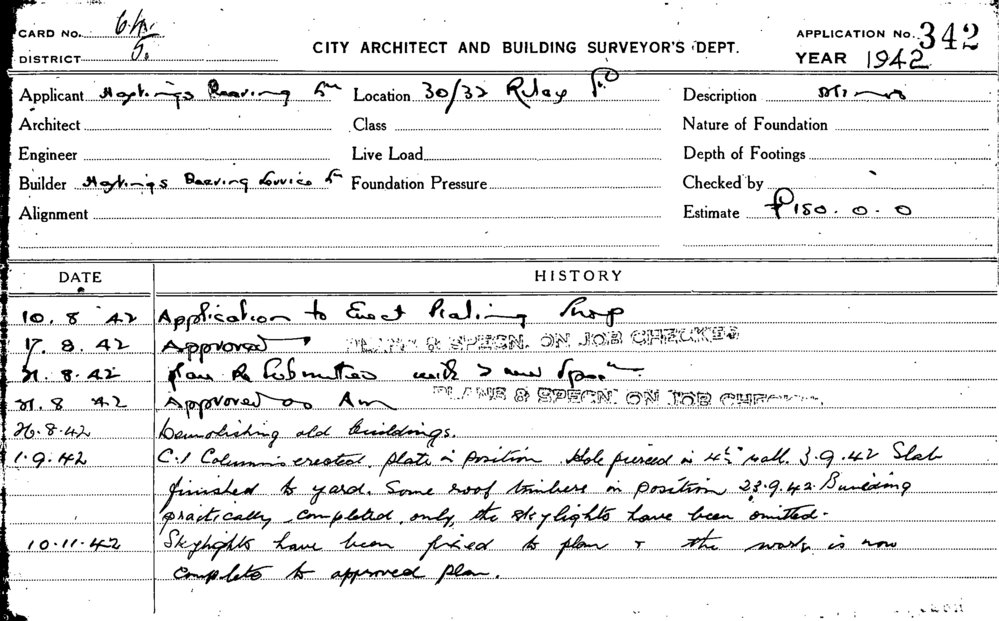 CARD No.
DISTRICT
CITY ARCHITECT AND BUILDING SURVEYOR'S DEPT.
APPLICATION No. 342
YEAR 1942
Applicant Hastings Deering
Location 30/32 Riley
Description
Architect
Class
Nature of Foundation
Engineer
Live Load
Depth of Footings
Builder Hastings Deering Service
Foundation Pressure
Checked by
Alignment
Estimate £150.0.0
DATE HISTORY
10.8.42 Application to Erect Shop
17.8.42 Approved PLANS & SPECN. ON JOB CHECKED
21.8.42 plan Re Submitted with
21.8.42 Approved as PLANS & SPECN. ON JOB CHECKED
26.8.42 Demolishing old buildings.
1.9.42 C.I Columns erected, plate in position Hole pierced in 4½" wall. 3.9.42 Slab
finished to yard. Some roof timbers in position 23.9.42. Building
practically completed, only, the skylights have been omitted.
10.11.42 Skylights have been fixed to plan & the work is now
complete to approved plan.